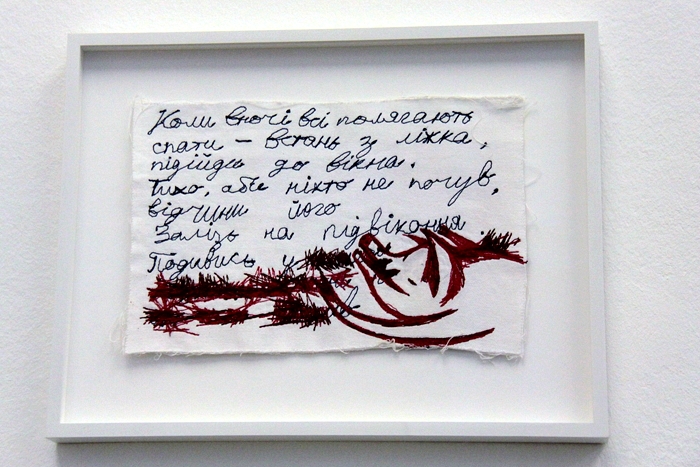 Коли вночі всі полягають
спати – встань з ліжка,
підійди до вікна.
Тихо, аби ніхто не почув,
відчини його
Залізь на підвіконня
Подивись у